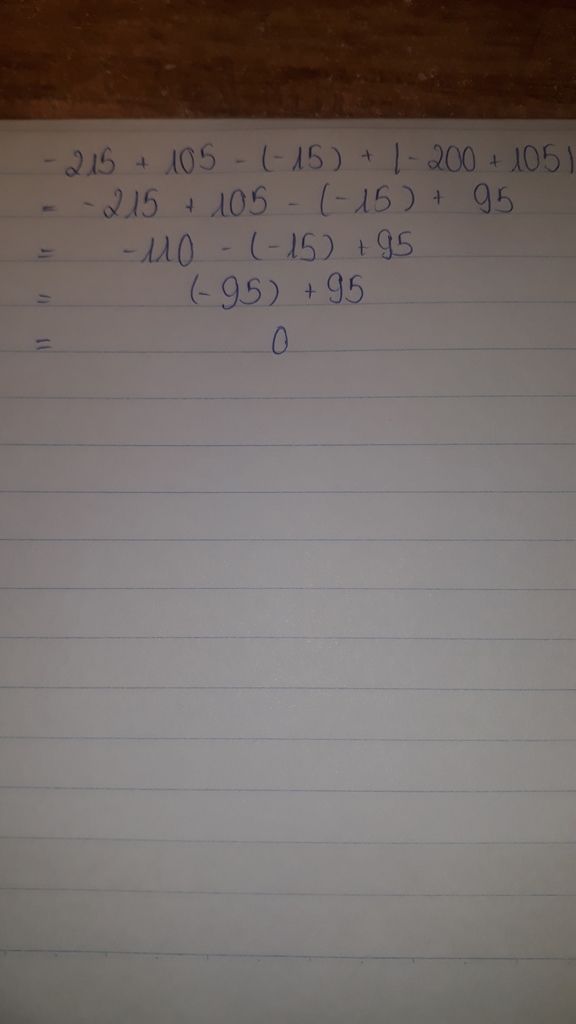 -215 + 105 - (-15) + |-200 + 105|
= -215 + 105 - (-15) + 95
= -110 - (-15) + 95
= (-95) + 95
= 0